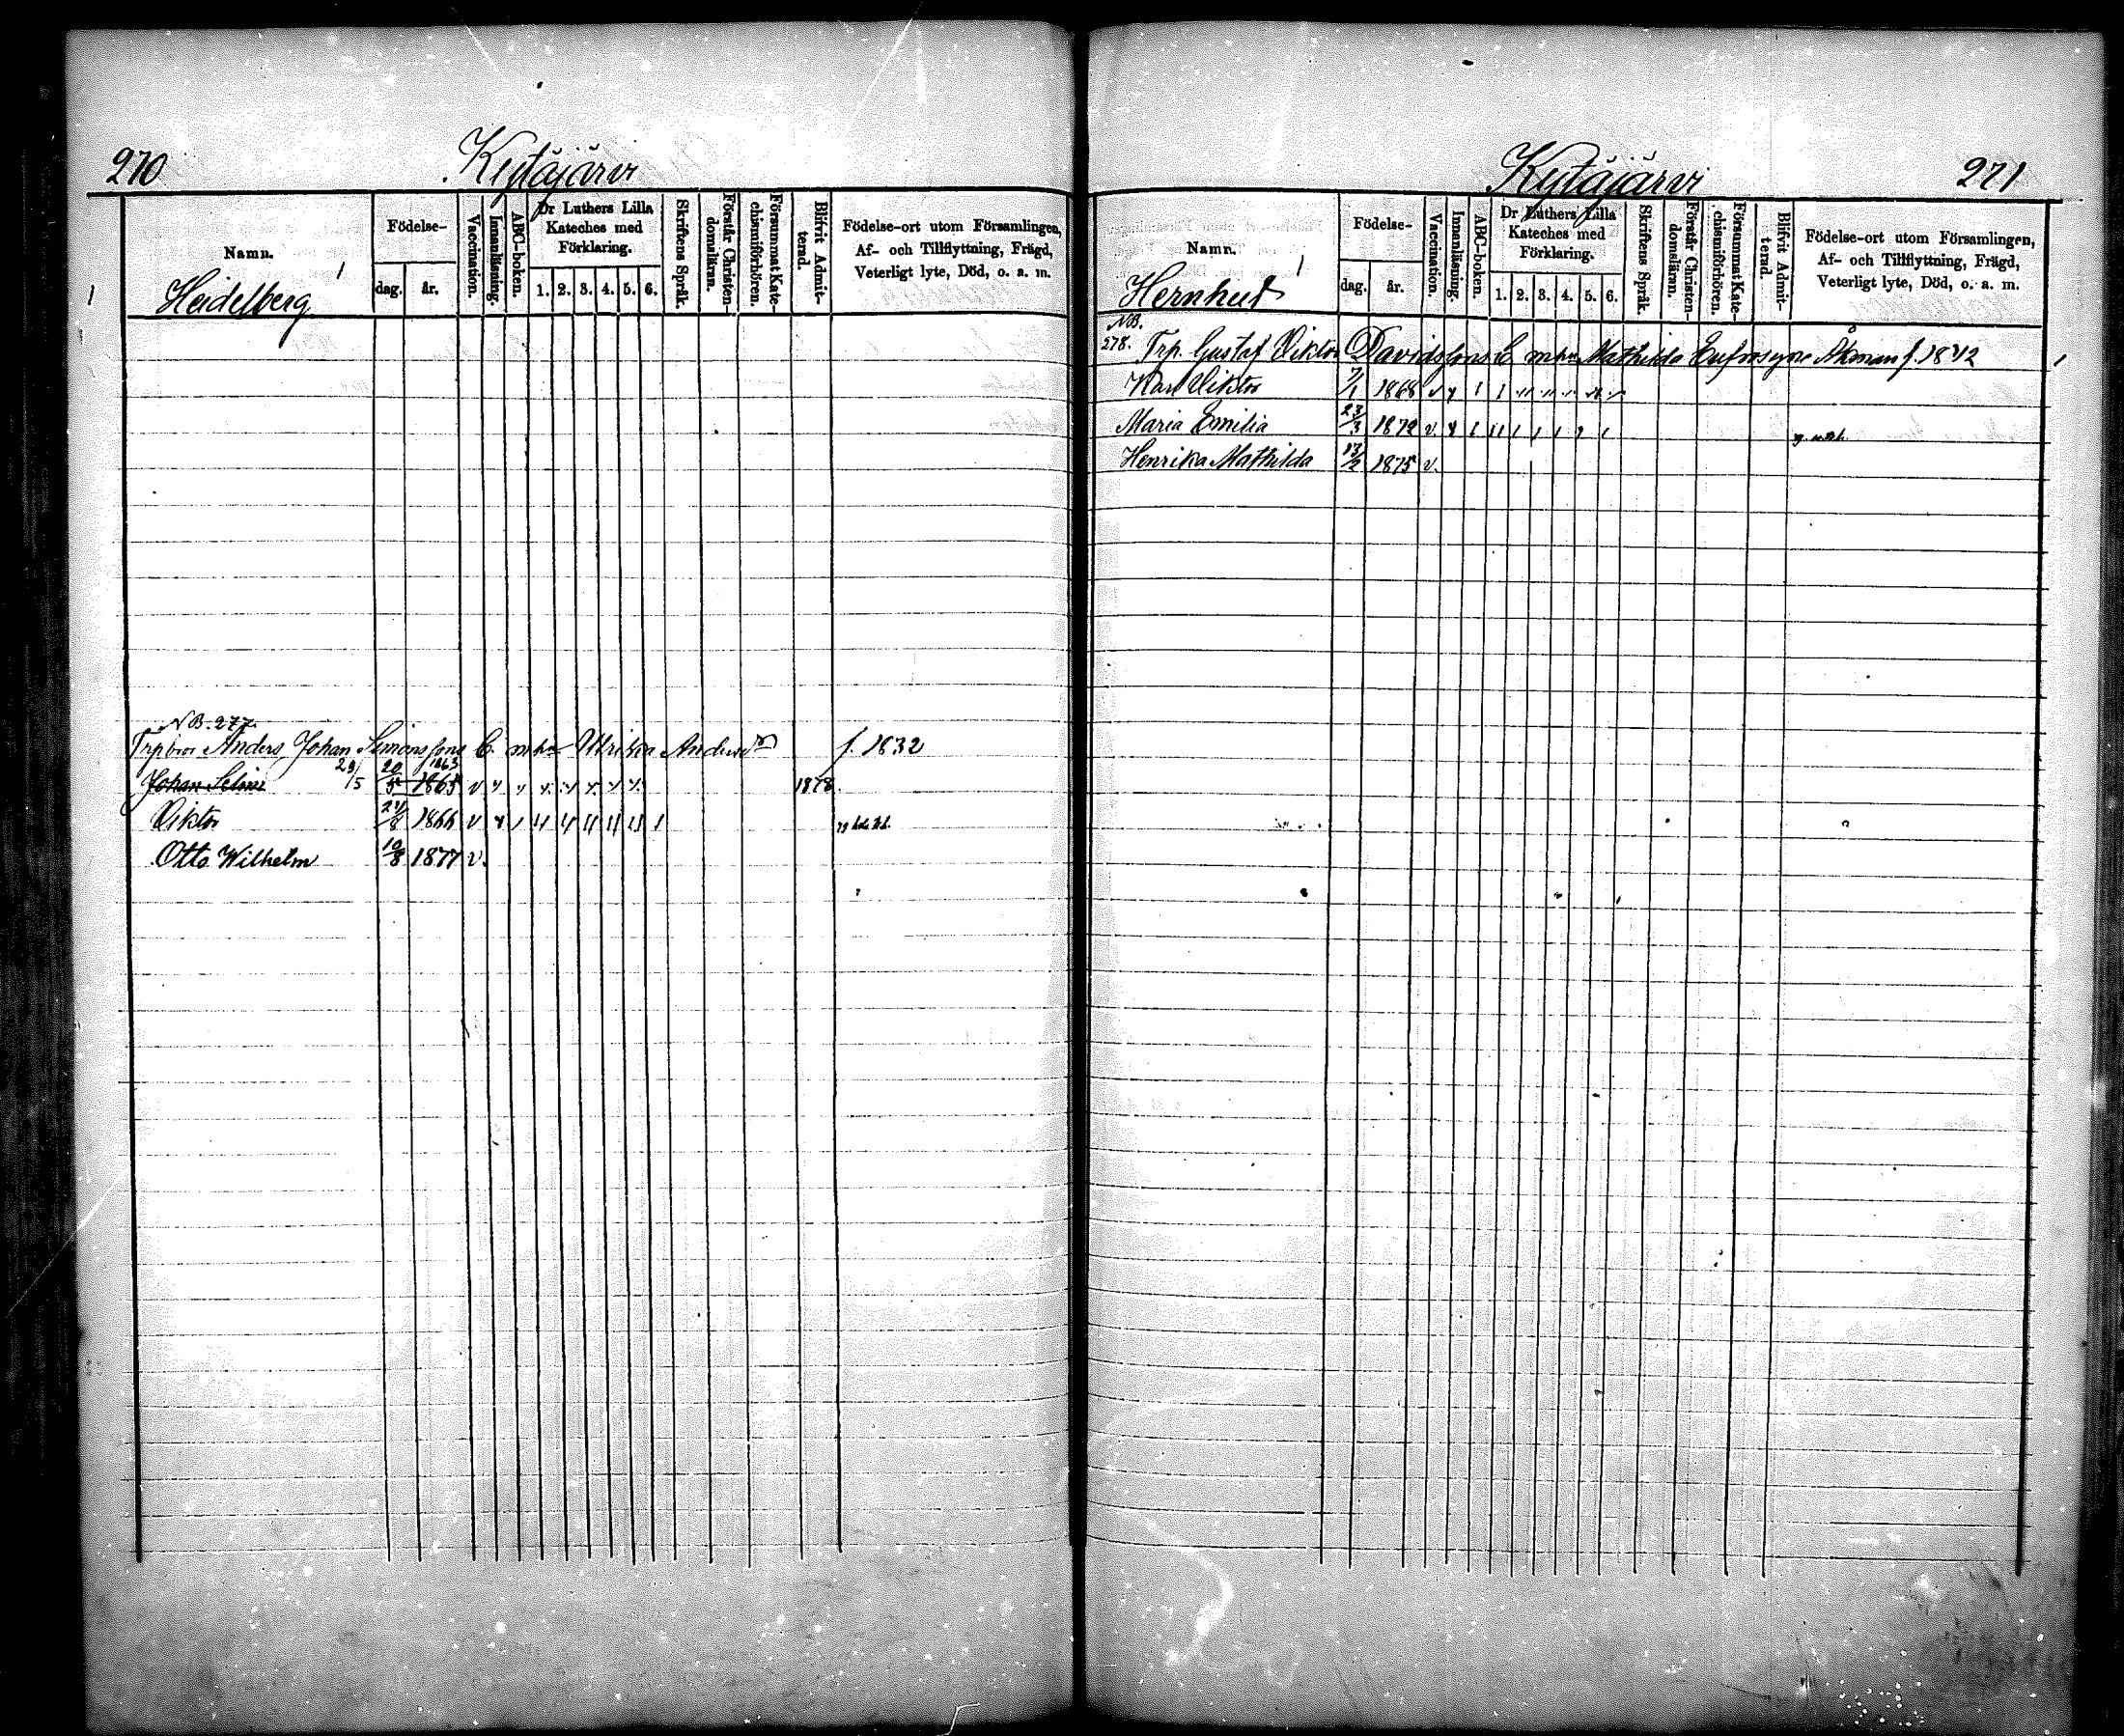 270
Kytäjärvi
Namn.
Födelse-
dag.
år.
Vaccination.
Innanläsning.
ABC-boken.
Dr Luthers Lilla
Kateches med
Förklaring.
1. 2. 3. 4. 5. 6.
Skriftens Språk.
Förstår Christen-
domsläran.
Försummat Kate-
chismiförhören.
Blifvit Admit-
terad.
Födelse-ort utom Församlingen,
Af- och Tillflyttning, Frägd,
Veterligt lyte, Död, o. a. m.
1 Heidelberg 1
NB. 277.
Anders Johan Simonssons Ulrika f. 1832
1863
Johan 29/5 20/5 1865 v 1878
Viktor 24/8 1866 v
Otto Wilhelm 19/8 1877 v.
Kytäjärvi
271
Namn.
Födelse-
dag.
år.
Vaccination.
Innanläsning.
ABC-boken.
Dr Luthers Lilla
Kateches med
Förklaring.
1. 2. 3. 4. 5. 6.
Skriftens Språk.
Förstår Christen-
domsläran.
Försummat Kate-
chismiförhören.
Blifvit Admit-
terad.
Födelse-ort utom Församlingen,
Af- och Tillflyttning, Frägd,
Veterligt lyte, Död, o. a. m.
Hernhut 1
NB.
278. Trp. Gustaf Viktor Davidssons Mathilda Åkman f. 1842 1
Karl Viktor 7/1 1868 v
Maria Emilia 23/3 1872 v.
Henrika Mathilda 1875 v.